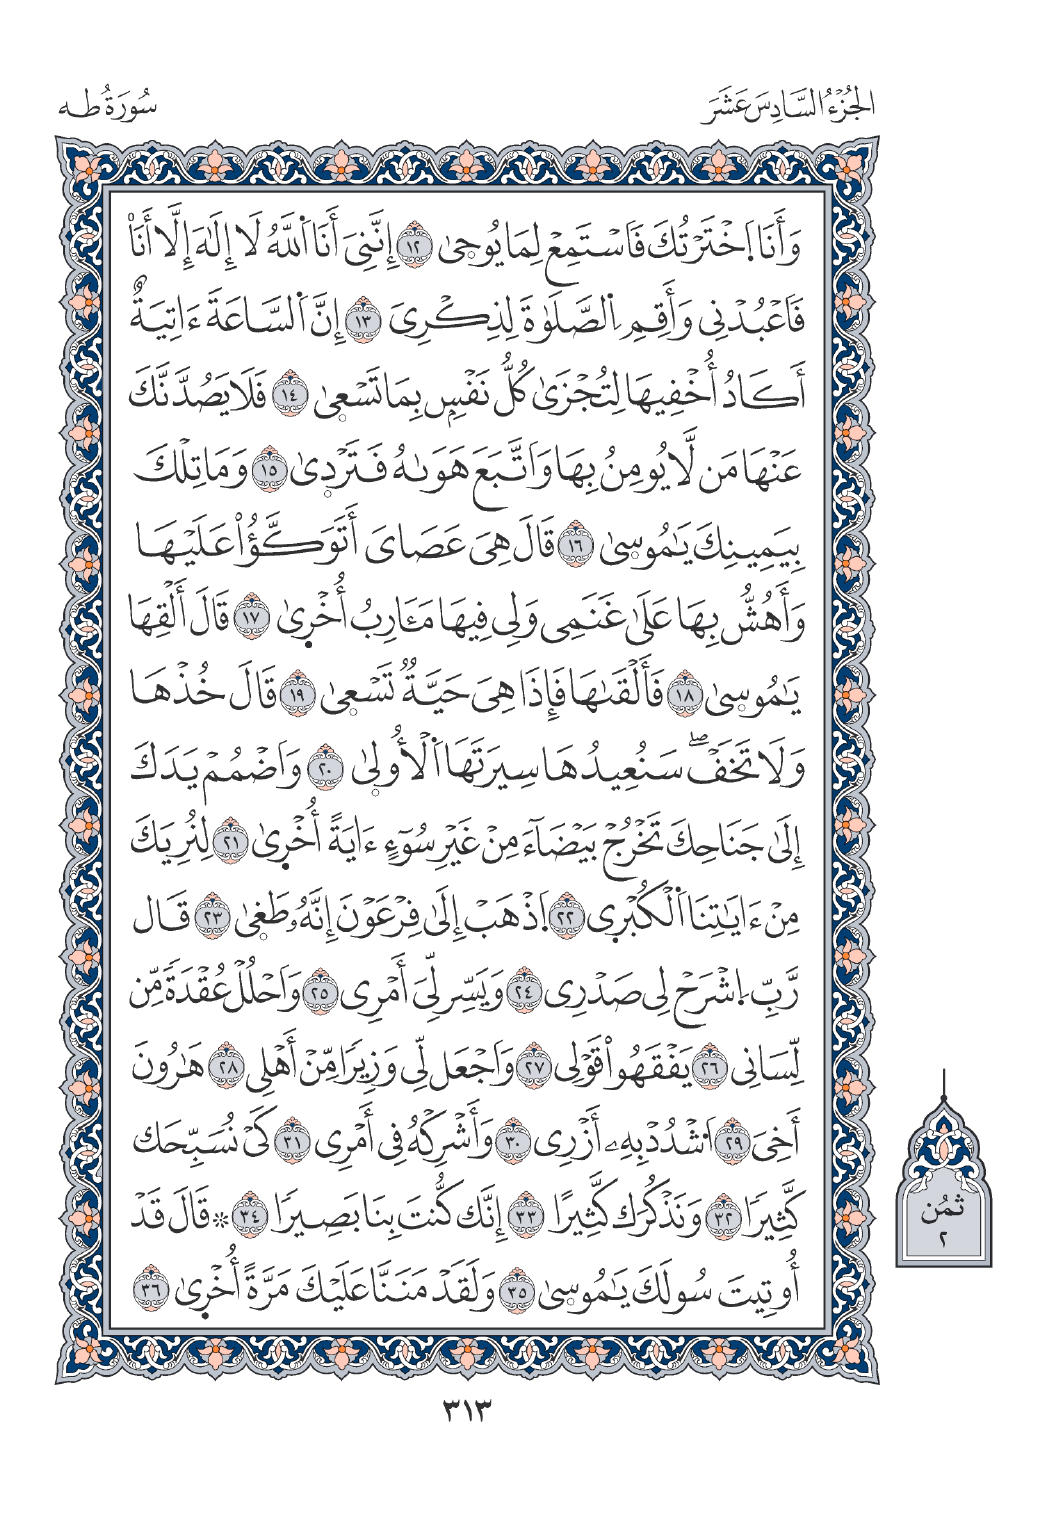 الجزء السادس عشر
سورة طه
وَأَنَا اَخْتَرْتُكَ فَاسْتَمِعْ لِمَا يُوحِىٰ ١٢ إِنَّنِىَ أَنَا اَللَّهُ لَا إِلَٰهَ إِلَّا أَنَا۠
فَاعْبُدْنِى وَأَقِمِ اِلصَّلَوٰةَ لِذِكْرِىَ ١٣ إِنَّ اَلسَّاعَةَ ءَاتِيَةٌ
أَكَادُ أُخْفِيهَا لِتُجْزَىٰ كُلُّ نَفْسٍ بِمَا تَسْعِىٰ ١٤ فَلَا يَصُدَّنَّكَ
عَنْهَا مَن لَّا يُومِنُ بِهَا وَاتَّبَعَ هَوَىٰهُ فَتَرْدِىٰ ١٥ وَمَا تِلْكَ
بِيَمِينِكَ يَٰمُوسِىٰ ١٦ قَالَ هِىَ عَصَاىَ أَتَوَكَّؤُا۟ عَلَيْهَا
وَأَهُشُّ بِهَا عَلَىٰ غَنَمِى وَلِى فِيهَا مَـَٔارِبُ أُخْرِىٰ ١٧ قَالَ أَلْقِهَا
يَٰمُوسِىٰ ١٨ فَأَلْقَىٰهَا فَإِذَا هِىَ حَيَّةٌ تَسْعِىٰ ١٩ قَالَ خُذْهَا
وَلَا تَخَفْ ۖ سَنُعِيدُهَا سِيرَتَهَا اَلْأُولِىٰ ٢٠ وَاضْمُمْ يَدَكَ
إِلَىٰ جَنَاحِكَ تَخْرُجْ بَيْضَآءَ مِنْ غَيْرِ سُوٓءٍ ءَايَةً أُخْرِىٰ ٢١ لِنُرِيَكَ
مِنْ ءَايَٰتِنَا اَلْكُبْرِى ٢٢ اَذْهَبْ إِلَىٰ فِرْعَوْنَ إِنَّهُۥ طَغِىٰ ٢٣ قَال
رَّبِّ اِشْرَحْ لِى صَدْرِى ٢٤ وَيَسِّر لِّىَ أَمْرِى ٢٥ وَاحْلُلْ عُقْدَةً مِّن
لِّسَانِى ٢٦ يَفْقَهُوا۟ قَوْلِى ٢٧ وَاجْعَل لِّى وَزِيرًا مِّنْ أَهْلِى ٢٨ هَٰرُونَ
أَخِىَ ٢٩ اَشْدُدْ بِهِۦ أَزْرِى ٣٠ وَأَشْرِكْهُ فِى أَمْرِى ٣١ كَىْ نُسَبِّحَك
كَّثِيرًا ٣٢ وَنَذْكُرَك كَّثِيرًا ٣٣ إِنَّك كُّنتَ بِنَا بَصِيرًا ٣٤ ۞ قَالَ قَدْ
أُوتِيتَ سُولَكَ يَٰمُوسِىٰ ٣٥ وَلَقَدْ مَنَنَّا عَلَيْكَ مَرَّةً أُخْرِىٰ ٣٦
ثمُن
٢
٣١٣